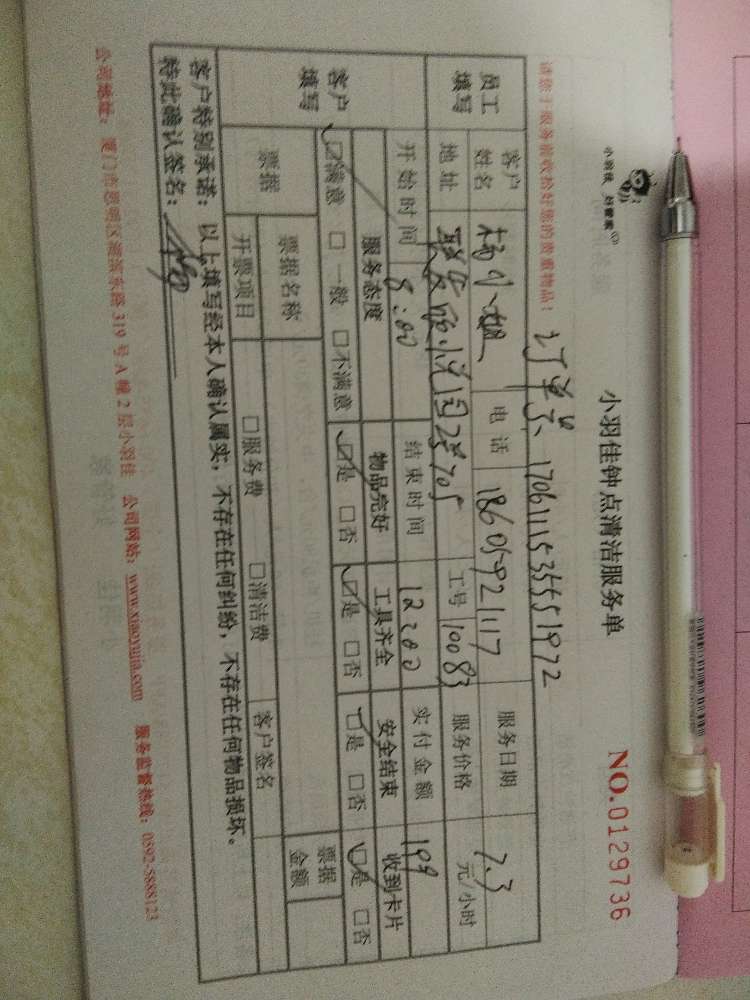 小羽佳 好管家
小羽佳钟点清洁服务单
NO.0129736
请您于服务前收拾好您的贵重物品!
订单号 1706111535551972
员工填写 客户姓名 杨小姐 电话 18605921117 服务日期 7.3
地址 联发欣悦园25#705 工号 10083 服务价格 元/小时
开始时间 8:00 结束时间 12:00 实付金额 199
客户填写 服务态度 物品完好 工具齐全 安全结束 收到卡片
☑满意 □一般 □不满意 ☑是 □否 ☑是 □否 ☑是 □否 ☑是 □否
票据 票据名称 票据金额
开票项目 □服务费 □清洁费 客户签名
客户特别承诺:以上填写经本人确认属实,不存在任何纠纷,不存在任何物品损坏。
特此确认签名:
公司地址:厦门市思明区湖滨东路319号A幢2层小羽佳 公司网站:www.xiaoyujia.com 服务监督热线:0592-5888123